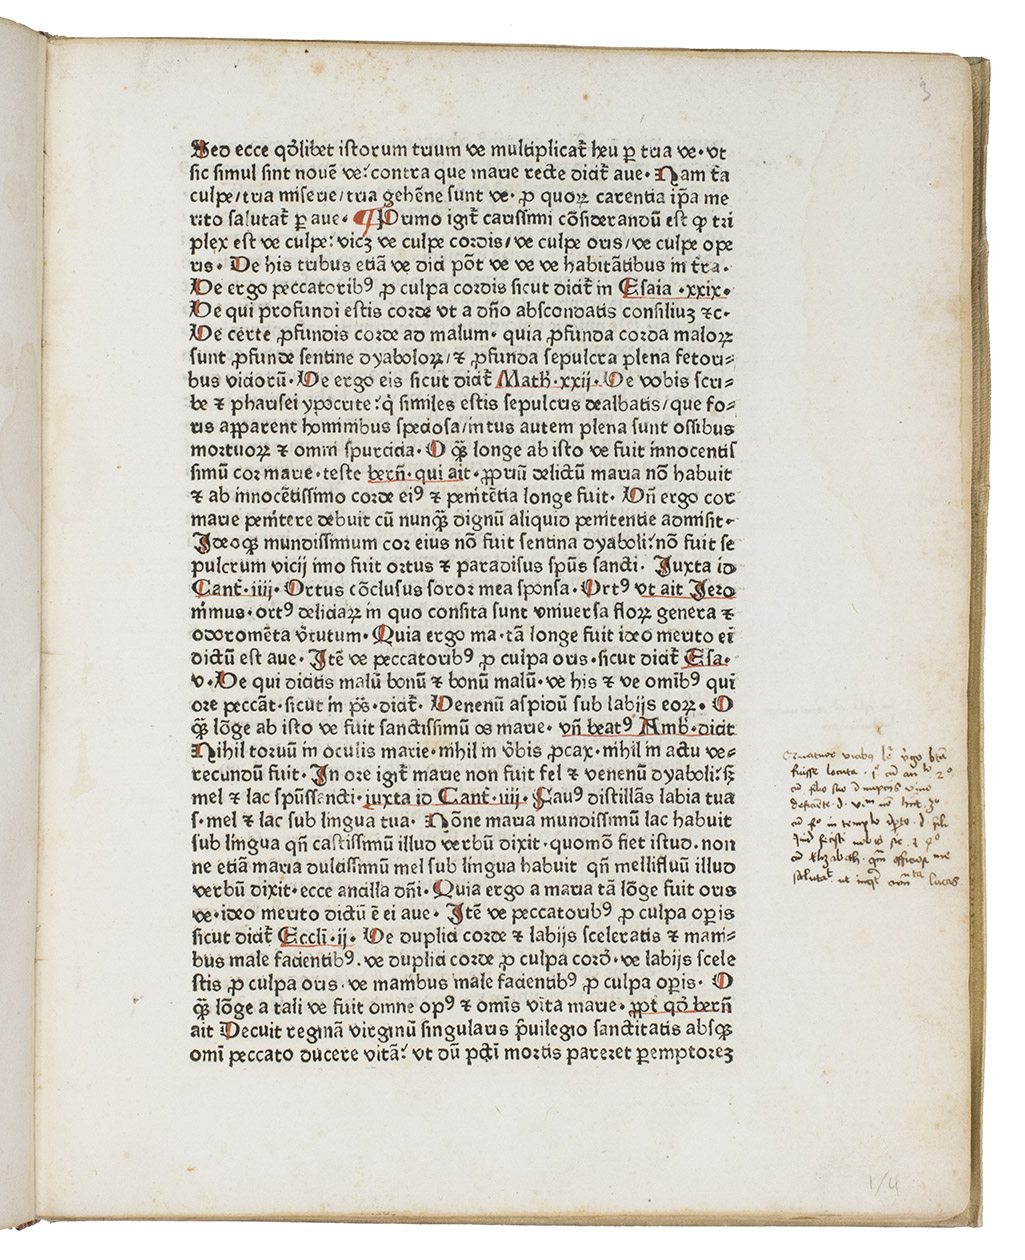 3
Sed ecce qd̄libet istorum trium ve multiplicat᷑ heu ꝑ tria ve· vt
sic simul sint novē ve: contra que marie recte dicit᷑ ave· Nam tria
culpe/ tria miserie/ tria gehēne sunt ve· ꝓ quoꝝ carentia ip̄a me
rito salutat᷑ ꝑ ave· ¶ Primo igit᷑ carissimi cōsiderandū est ꝙ tri
plex est ve culpe: vicꝫ ve culpe cordis/ ve culpe oris/ ve culpe ope
ris· De his tribus etiā ve dici pōt ve ve ve habitātibus in t᷑ra·
Ve ergo peccatoribꝰ ꝓ culpa cordis sicut dicit᷑ in Esaia ·xxix·
Ve qui profundi estis corde vt a dn̄o abscondatis consiliuꝫ ⁊c·
Ve certe ꝓfundis corde ad malum· quia ꝓfunda corda maloꝝ
sunt ꝓfunde sentine dyaboloꝝ/ ⁊ ꝓfunda sepulcra plena fetori⸗
bus vicioru̅· Ve ergo eis sicut dicit᷑ Math̓·xxij· Ve vobis scri⸗
be ⁊ pharisei ypocrite: q̇ similes estis sepulcris dealbatis/ que fo⸗
ris aꝑparent hominibus speciosa/ intus autem plena sunt ossibus
mortuoꝝ ⁊ omni spurcicia· O ꝙ̄ longe ab isto ve fuit innocentis
simū cor marie· teste berñ· qui ait· ꝓpriū delictū maria nō habuit
⁊ ab innocētissimo corde eiꝰ ⁊ penitētia longe fuit· Vn̄ ergo cor
marie penitere debuit cū nunꝙ̄ dignū aliquid penitentie admisit·
Ideoqꝫ mundissimum cor eius nō fuit sentina dyaboli: nō fuit se
pulcrum vicij imo fuit ortus ⁊ paradisus spūs sancti· Juxta id
Cant̄· iiij· Ortus cōclusus soror mea sponsa· Ortꝰ vt ait Jero
nimus· ortꝰ deliciaꝝ in quo consita sunt vniuersa floꝝ genera ⁊
odoromēta v̓tutum· Quia ergo ma· tā longe fuit ideo merito ei
dictū est ave· Itē ve peccatoribꝰ ꝓ culpa oris· sicut dicit᷑ Esa·
v· Ve qui dicitis malū bonū ⁊ bonū malū· ve his ⁊ ve omībꝰ qui
ore peccāt· sicut in ps̄· dicit᷑· Venenū aspidū sub labijs eoꝝ· O
ꝙ̄ lōge ab isto ve fuit sanctissimū os marie· vn̄ beatꝰ Amb̓· dicit
Nihil torvū in oculis marie· nihil in v̓bis ꝓcax· nihil in actu ve⸗
recundū fuit· In ore igit᷑ marie non fuit fel ⁊ venenū dyaboli: sꝫ
mel ⁊ lac spūssancti· iuxta id Cant̄· iiij· Fauꝰ distillās labia tua
s· mel ⁊ lac sub lingua tua· Nōne maria mundissimū lac habuit
sub lingua qn̄ castissimū illud verbū dixit· quomō fiet istud· non
ne etiā maria dulcissimū mel sub lingua habuit qn̄ mellifluū illud
verbū dixit· ecce ancilla dn̄i· Quia ergo a maria tā lōge fuit oris
ve· ideo merito dictū ē ei ave· Itē ve peccatoribꝰ ꝓ culpa oꝑis
sicut dicit᷑ Eccli· ij· Ve duplici corde ⁊ labijs sceleratis ⁊ mani⸗
bus male facientibꝰ· ve duplici corde ꝓ culpa cord̓· ve labijs scele
stis ꝓ culpa oris· ve manibus male facientibꝰ ꝓ culpa oꝑis· O
ꝙ̄ lōge a tali ve fuit omne opꝰ ⁊ omīs vita marie· ꝓpt̓ qd̄ berñ
ait Decuit reginā virginū singularis p̓uilegio sanctitatis absqꝫ
omi peccato ducere vitā: vt dū pcti mortis pareret ꝑemptoreꝫ
fuisse locuta
in templo
Elizabeth
lucas
1/4